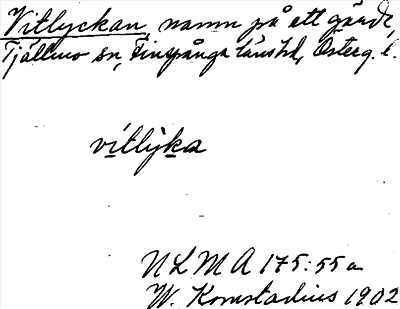 Vitlyckan, namn på ett gärde,
Tjällmo sn, Finspånga länshd, Österg. l.
vítlỳka
NLMA 175:55a
W. Komstadius 1902